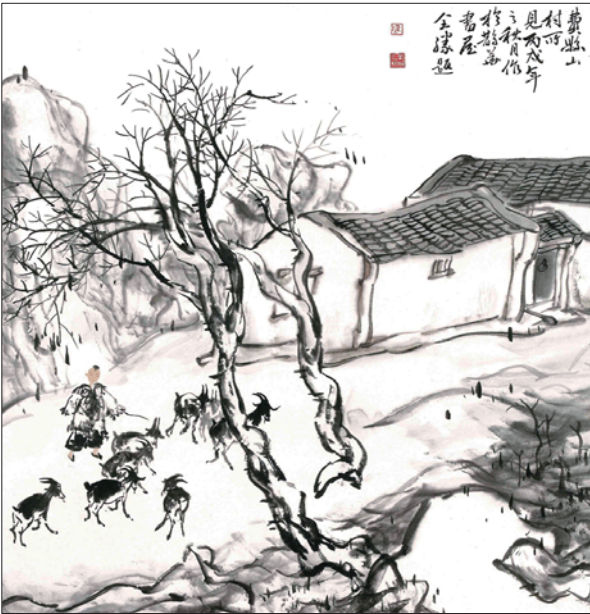 費縣山
村所
見丙戌年
之秋月作
於鵲華
書屋
全勝題